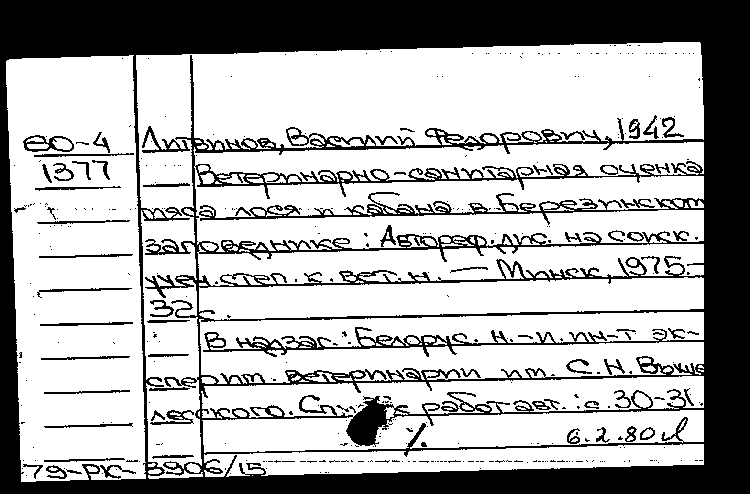 60-4 Литвинов, Василий Федорович, 1942
1377 Ветеринарно-санитарная оценка
мяса лося и кабана в Березинском
заповеднике: Автореф. дис. на соиск.
учен. степ. к. вет. н. — Минск, 1975.—
32 с.
В надзаг.: Белорус. н.-и. ин-т эк-
сперим. ветеринарии им. С. Н. Выше
лесского. работ авт.: с. 30-31.
6.2.80
79-РК- 3906/15